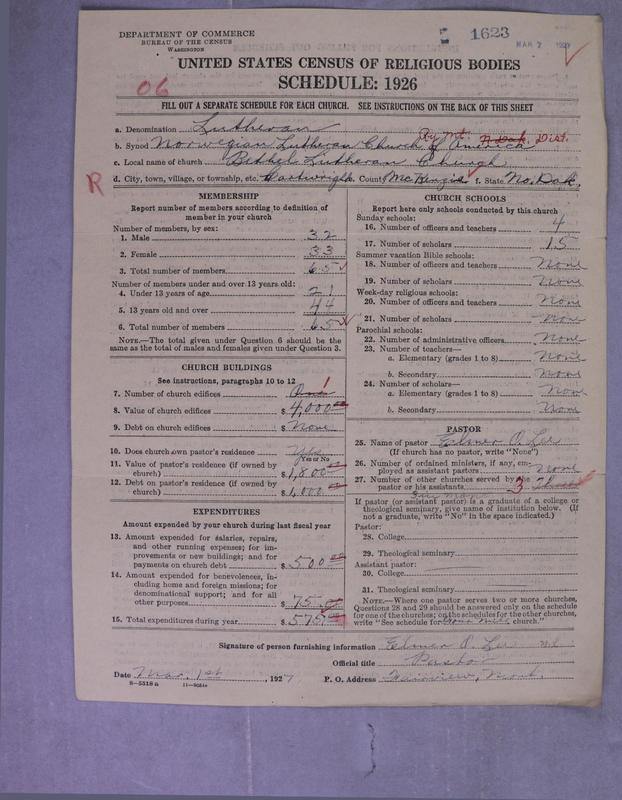 DEPARTMENT OF COMMERCE
BUREAU OF THE CENSUS
WASHINGTON
1623
MAR 2 1927
UNITED STATES CENSUS OF RELIGIOUS BODIES
SCHEDULE: 1926
06
FILL OUT A SEPARATE SCHEDULE FOR EACH CHURCH. SEE INSTRUCTIONS ON THE BACK OF THIS SHEET
a. Denomination Lutheran
Ry. Mt. N. Dak. Dist.
b. Synod Norwegian Lutheran Church of America
c. Local name of church Bethel Lutheran Church
R
d. City, town, village, or township, etc. Cartwright e. County McKenzie f. State No. Dak.
MEMBERSHIP
Report number of members according to definition of
member in your church
Number of members, by sex:
1. Male 32
2. Female 33
3. Total number of members 65
Number of members under and over 13 years old:
4. Under 13 years of age 21
5. 13 years old and over 44
6. Total number of members 65
NOTE.—The total given under Question 6 should be the
same as the total of males and females given under Question 3.
CHURCH BUILDINGS
See instructions, paragraphs 10 to 12
7. Number of church edifices One 1
8. Value of church edifices $ 4,000.00
9. Debt on church edifices $ None
10. Does church own pastor's residence Yes
Yes or No
11. Value of pastor's residence (if owned by
church) $ 1,800.00
12. Debt on pastor's residence (if owned by
church) $ 1,000.00
EXPENDITURES
Amount expended by your church during last fiscal year
13. Amount expended for salaries, repairs,
and other running expenses; for im-
provements or new buildings; and for
payments on church debt $ 500.00
14. Amount expended for benevolences, in-
cluding home and foreign missions; for
denominational support; and for all
other purposes $ 75.00
15. Total expenditures during year $ 575.00
CHURCH SCHOOLS
Report here only schools conducted by this church
Sunday schools:
16. Number of officers and teachers 4
17. Number of scholars 15
Summer vacation Bible schools:
18. Number of officers and teachers None
19. Number of scholars None
Week-day religious schools:
20. Number of officers and teachers None
21. Number of scholars None
Parochial schools:
22. Number of administrative officers None
23. Number of teachers—
a. Elementary (grades 1 to 8) None
b. Secondary None
24. Number of scholars—
a. Elementary (grades 1 to 8) None
b. Secondary None
PASTOR
25. Name of pastor Elmer O. Lee
(If church has no pastor, write "None")
26. Number of ordained ministers, if any, em-
ployed as assistant pastors None
27. Number of other churches served by the
pastor or his assistants 3 Three
If pastor (or assistant pastor) is a graduate of a college or
theological seminary, give name of institution below. (If
not a graduate, write "No" in the space indicated.)
Pastor:
28. College
29. Theological seminary
Assistant pastor:
30. College
31. Theological seminary
NOTE.—Where one pastor serves two or more churches,
Questions 28 and 29 should be answered only on the schedule
for one of the churches; on the schedules for the other churches,
write "See schedule for church."
Signature of person furnishing information Elmer O. Lee
Official title Pastor
Date Mar. 1st, 1927
P. O. Address Fairview, Mont.
8—5518a 11—9051